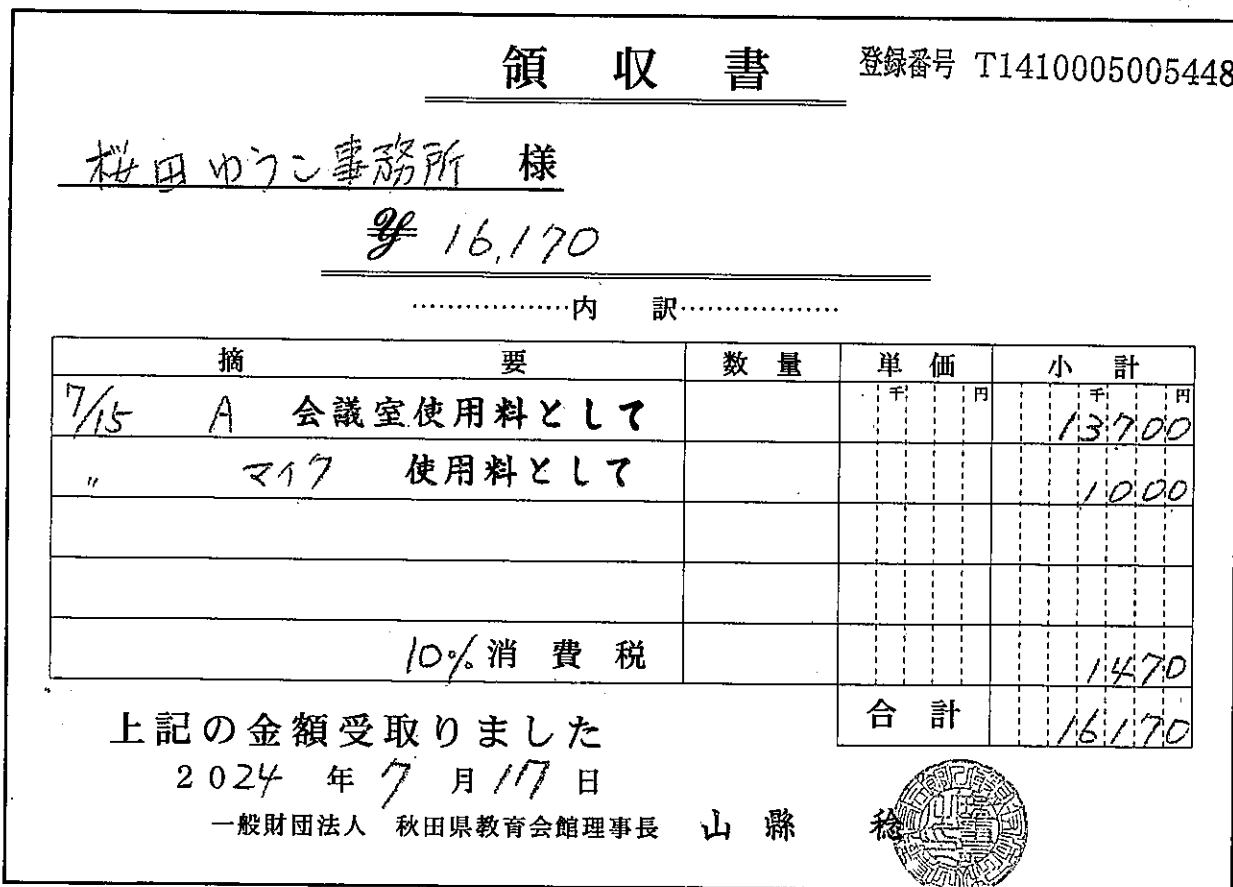 領収書 登録番号 T1410005005448
桜田ゆうこ事務所 様
¥ 16,170
………………内 訳………………
摘 要 数量 単価 小計
千 円 千 円
7/15 A 会議室使用料として 13700
〃 マイク 使用料として 1000
10% 消費税 1470
合計 16170
上記の金額受取りました
2024 年 7 月 17 日
一般財団法人 秋田県教育会館理事長 山縣 稔